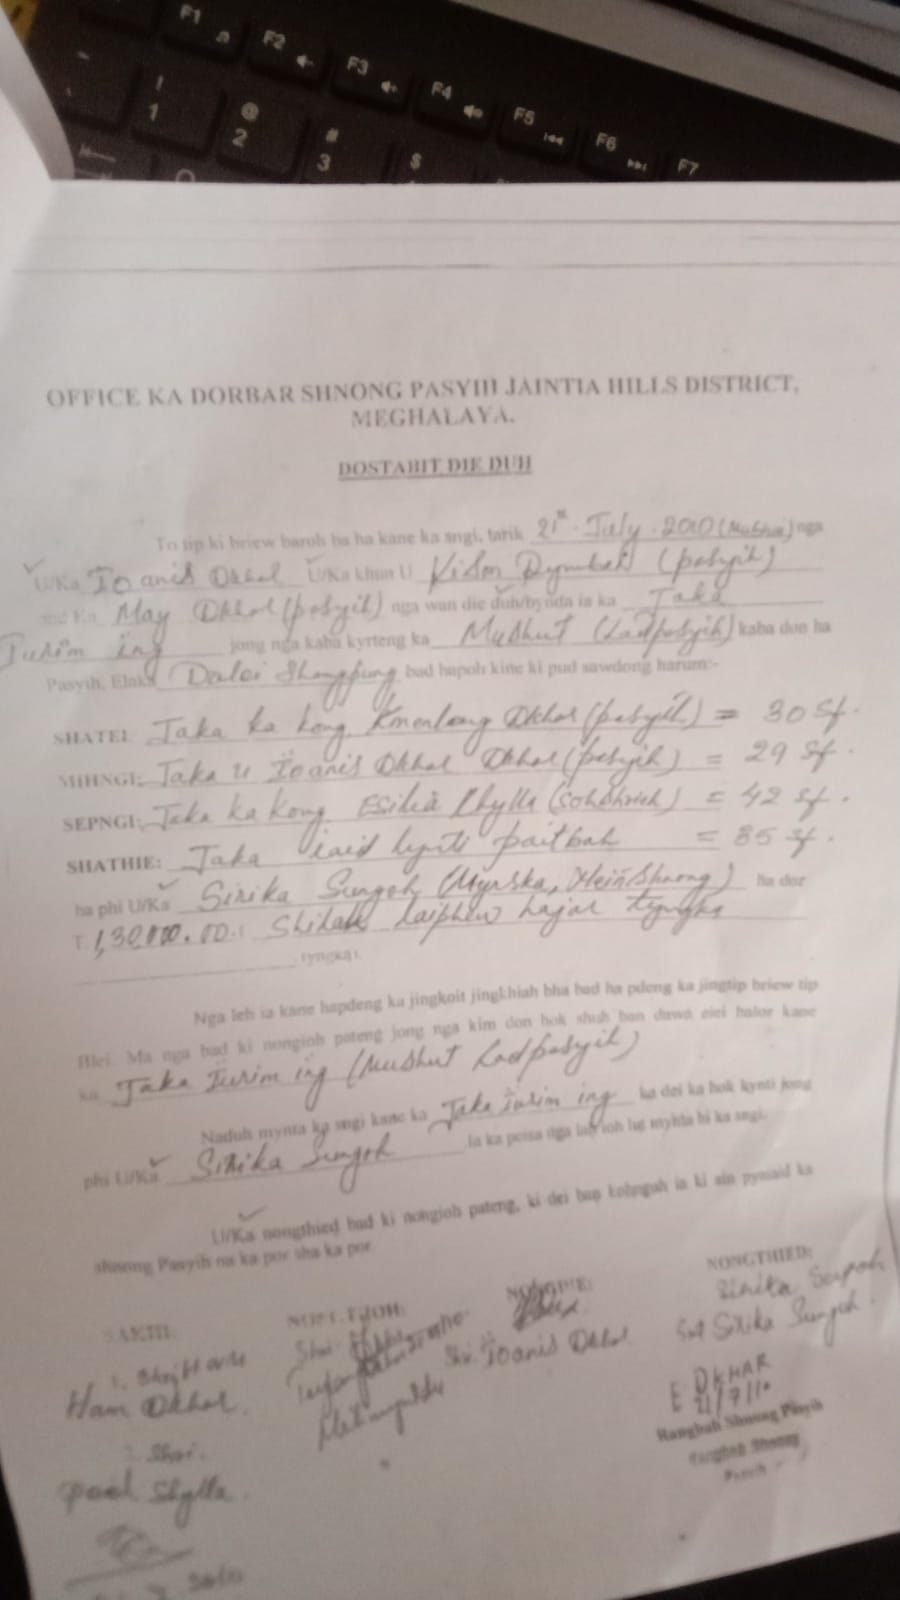 F1
F2
F3
F4
F5
F6
F7
!
1
@
2
#
3
$
OFFICE KA DORBAR SHNONG PASYIH JAINTIA HILLS DISTRICT,
MEGHALAYA.
DOSTABIT DIE DUH
To tip ki briew baroh ba ha kane ka sngi, tarik 21st July 2010 (Mushai) nga
U/Ka Ioanis Dkhar U/Ka khun U (pasyih)
bad Ka May Dkhar (pasyih) nga wan die duh/bynda ia ka Jaka
Iurim ing jong nga kaba kyrteng ka Mushut (Ladpasyih) kaba don ha
Pasyih, Elaka Daloi Shangpung bad hapoh kine ki pud sawdong harum:-
SHATEI: Jaka ka kong Dkhar (pasyih) = 30 sf.
MIHNGI: Jaka u Ioanis Dkhar Dkhar (pasyih) = 29 sf.
SEPNGI: Jaka ka kong Phylla = 42 sf.
SHATHIE: Jaka iaid lynti paitbah = 35 sf.
ha phi U/Ka Sirika Sungoh ha dor
T. 1,30,000.00 Shilak laiphew hajar tyngka
tyngka.
Nga leh ia kane hapdeng ka jingkoit jingkhiah bha bad ha pdeng ka jingtip briew tip
Blei. Ma nga bad ki nongioh pateng jong nga kim don hok shuh ban dawa eiei halor kane
ka Jaka Iurim ing (Mushut Ladpasyih)
Naduh mynta ka sngi kane ka Jaka iurim ing ka dei ka hok kynti jong
phi U/Ka Sirika Sungoh la ka peisa nga lah ioh lut mynta hi ka sngi.
U/Ka nongthied bad ki nongioh pateng, ki dei ban kohnguh ia ki ain pyniaid ka
shnong Pasyih na ka por sha ka por.
SAKHI: NONGDIE: NONGTHIED:
1. Shri
Ham Dkhar.
Shri Ioanis Dkhar
Smt Sirika Sungoh.
2. Shri.
Paul Shylla.
E DKHAR
21/7/10
Rangbah Shnong Pasyih
Rangbah Shnong